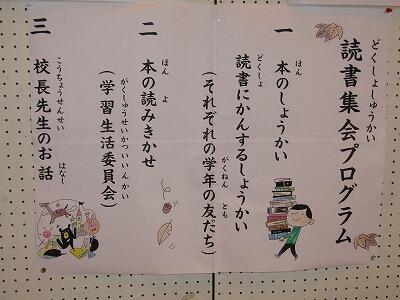 読書集会プログラム
どくしょしゅうかい
一 本のしょうかい
ほん
読書にかんするしょうかい
どくしょ
(それぞれの学年の友だち)
がくねん とも
二 本の読みきかせ
ほん よ
(学習生活委員会)
がくしゅうせいかついいんかい
三 校長先生のお話
こうちょうせんせい はなし